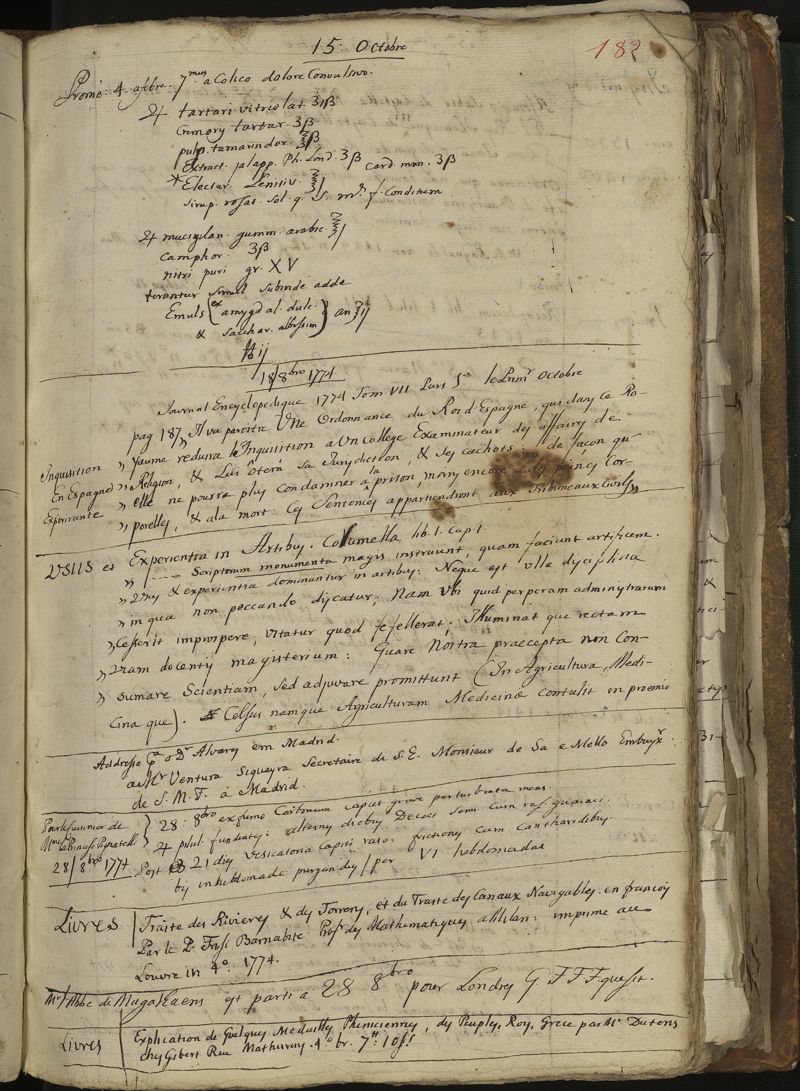 15. Octobre
182
4. a febre. 7mus a Colico dolore Convulsivo.
♃ tartari vitriolat. ʒiβ
Cremory tartar. ʒβ
pulp. tamarindor. ℥β
Extract. jalapp. Ph. Lond. ʒβ Card. min. ʒβ
* Electar. Lenitiv. ℥j
sirup. rosat. sol. q. s. f. Conditum
♃ mucigylan. gumm. arabic. ℥j
Camphor. ʒβ
nitri puri gr. XV
terantur simul subinde adde
Emuls { ex amygdal. dulc.
& sacchar. albissim } an ℥ij
℔ij
18/8bro 1774
Journal Encyclopedique 1774 Tom. VII Pars 1a le Primr Octobre
pag 187 „ Il va paroitre Une Ordonnance du Roi d'Espagne, qui dans ce Ro-
„ yaume reduira le Inquisition a Un College Examinateur des affaires de
Inquisition
En Espagne
Expirante
„ Religion, & Lui ôtera sa Jurisdiction, & ses cachots : de façon qu'
„ elle ne pourra plus condamner a la prison, moins encore a des peines Cor-
„ porelles, & a la mort: Ces Sentences appartiendront aux Tribuneaux Civils„
USUS et Experientia in Artibus. Columella lib. 1. Cap. 1.
„ ---- Scriptorum monumenta magis instruunt, quam faciunt artificem.
„ Usus & experientia dominantur in artibus: Neque est ulla disciplina
„ in qua non peccando discatur; Nam Ubi quid perperam administratum
„ Cesserit improspere, vitatur quod fefellerat; Illuminat que rectam
„ Viam docentis magisterium: Quare Nostra praecepta non Con-
„ sumare Scientiam, sed adjuvare promittunt (In Agricultura, Medi-
cina que). Celsus namque Agriculturam Medicinæ Contulit in proemio
Addresse pa o Dr Alvares em Madrid.
a Mr Ventura Siqueyra Secretaire de S. E. Monsieur de Sa e Mello Embayxr
de S. M. F. á Madrid.
Pour le
Mme la Pignatelli
28/8bro 1774
28. 8bro ex fumo Carbonum caput grave perturbata mens.
♃ pilul. fundentes: alternis diebus Decoct. Semi. Cum ras. guaiaci.
Post 21 dies Vesicatoria Capiti raso: frictiones Cum Cantharidibus.
bis in hebdomade purgandus / per VI hebdomadas
Livres
Traite des Rivieres & des Torrens, et du Traite des Canaux Navigables. en francois
Par le P. Frisi Barnabite Profr des Mathematiques a Milan: imprime au
Louvre in 4o. 1774.
Mr l'Abbe de Magalhaens est parti a 28 8bro pour Londres
Livres
Explication de Quelques Medailles Pheniciennes, des Peuples, Roys, Grece par Mr. Dutens
chez Gibert Rue Mathurins. 4o br. 7# 10fs